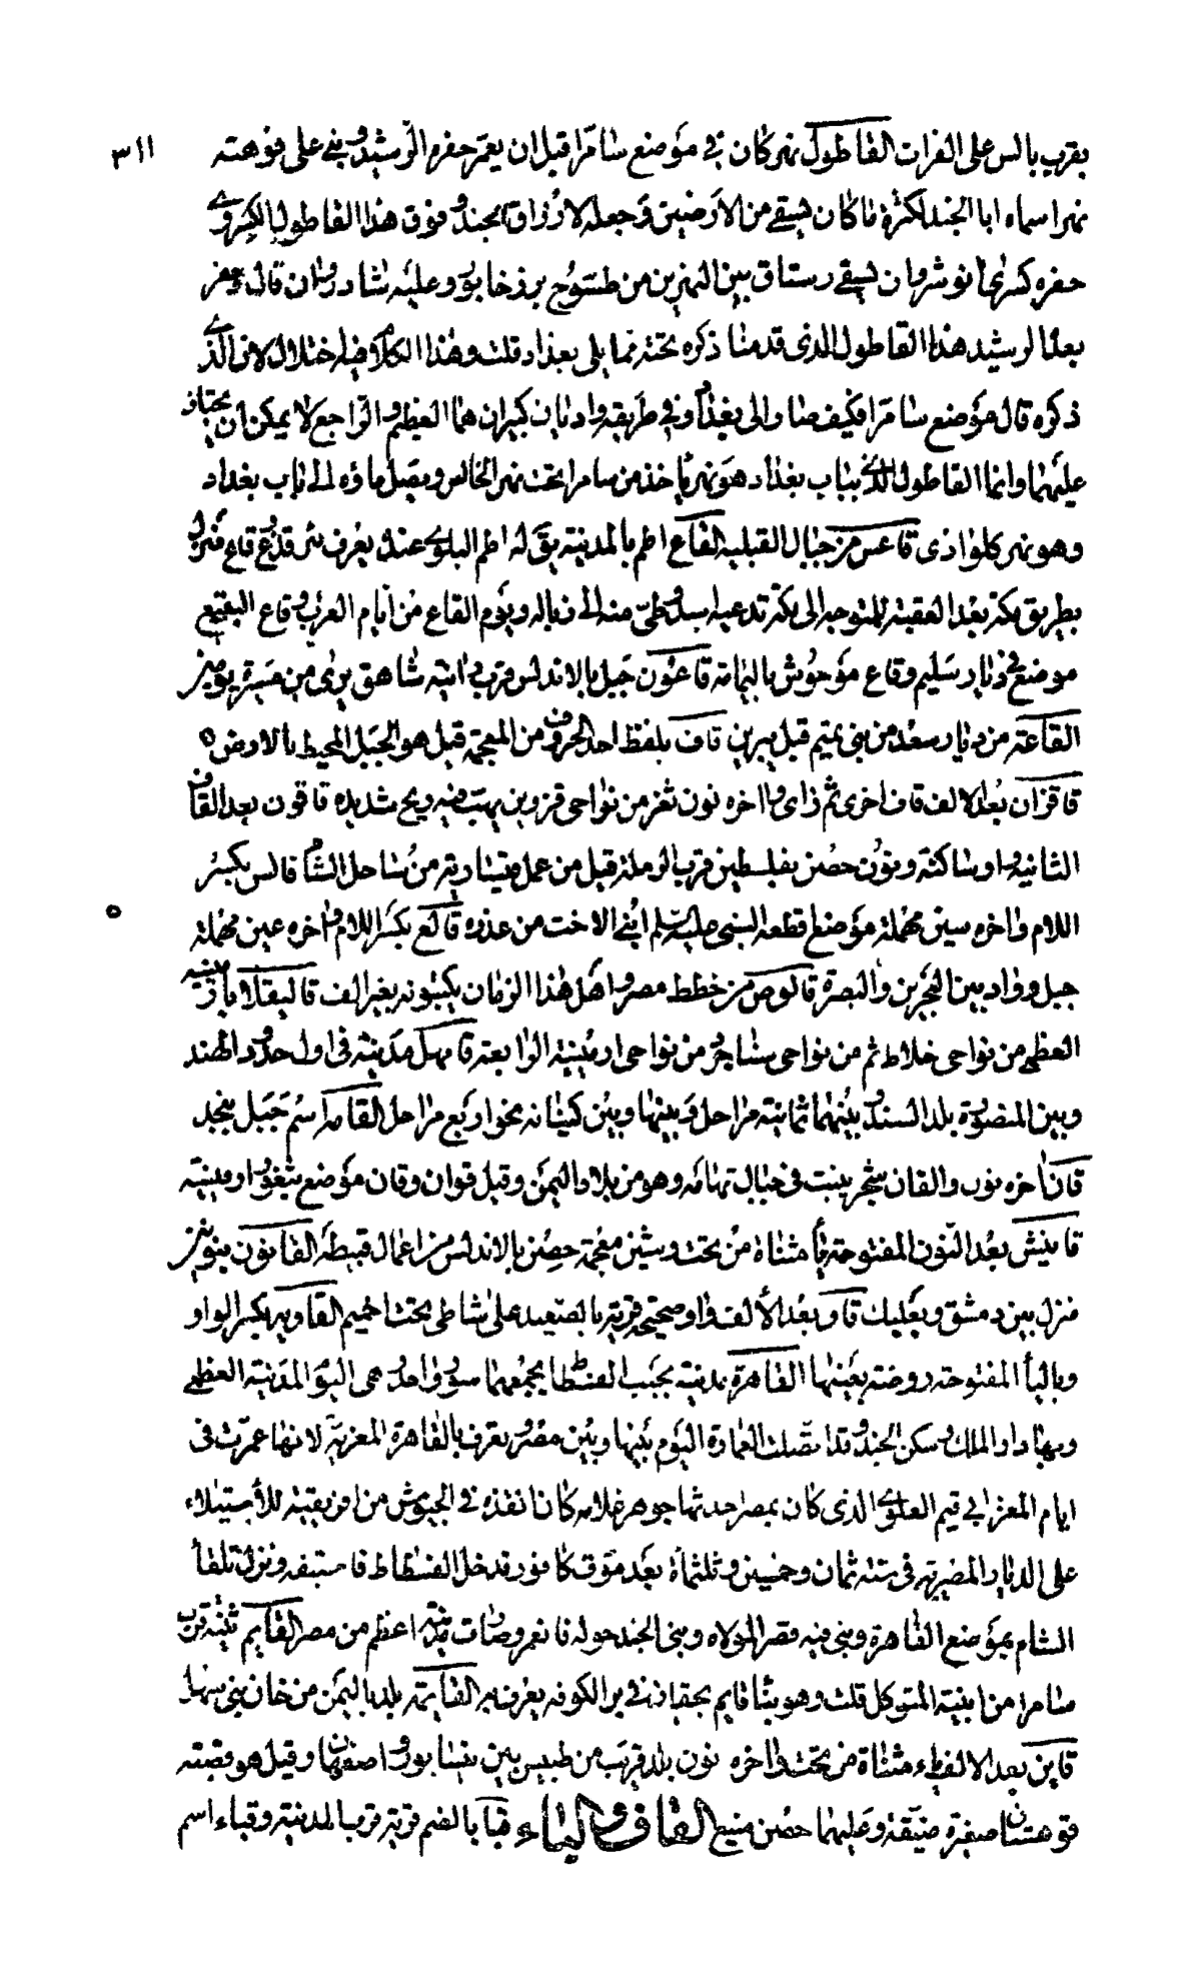 ٣١١
بقرب بالس على الفرات القاطول نهر كان فى موضع سامرا قبل ان يعمر حفره الرشيد و بنى على فوهته
نهرا سماه ابا الجند لكثرة ما كان يسقى من الارضين وجعله لارزاق الجند و فوق هذا القاطول الكسروى
حفره كسرى انوشروان يسقى رستاق بين النهرين من طسوج بزرجسابور وعليه شادروان قال وحفر
بعد الرشيد هذا القاطول الذى قدمنا ذكره تحته مما يلى بغداد قلت وهذا الكلام فيه اختلال لان الذى
ذكره قال موضع سامرا فكيف صار الى بغداد وفى طريقه واديان كبيران هما العظيم والراجع لا يمكن ان يجتاز
عليهما وانما القاطول الذى بباب بغداد هو نهر ياخذ من سامرا تحت نهر الخالص ويصل ماؤه الى باب بغداد
وهو نهر كلواذى قاعس من جبال القبلية القاع اطم بالمدينة يق له اطم البلوى عنده يعرف بئر غدق قاع منزل
بطريق مكة بعد العقبة للمتوجه الى مكة تدعيه اسد وطى منه الى زباله ويوم القاع من ايام العرب وقاع البقيع
موضع فى ديار سليم وقاع موحوش باليمامة قاعون جبل بالاندلس قرب دانية شاهق يرى من مسيرة يومين
القاعة من ديار سعد من بنى تميم قبل يبرين قاف بلفظ احد الحروف من المعجمة قيل هو الجبل المحيط بالارض ه
قاقزان بعد الالف قاف اخرى ثم زاى واخره نون ثغر من نواحى قزوين يهب فيه ريح شديده قاقون بعد القاف
الثانية واو ساكنة ونون حصن بفلسطين قرب الرملة قيل من عمل قيسارية من ساحل الشام قالس بكسر
اللام واخره سين مهملة موضع اقطعه النبى صلى الله عليه وسلم بنى الاخت من عذره قالع بكسر اللام واخره عين مهملة
جبل وواد بين البحرين والبصرة قالوص من خطط مصر واهل هذا الزمان يكتبونه بغير الف قاليقلا بارمينيه
العظمى من نواحى خلاط ثم من نواحى منازجرد من نواحى ارمينية الرابعة قامهل مدينة فى اول حدود الهند
وبين المنصورة بلد السند وبينهما ثمانية مراحل وبينها وبين كنبايه نحو اربع مراحل القامه اسم جبل بنجد
قان اخره نون والقان شجر ينبت فى جبال تهامه وهو من بلاد اليمن وقيل قوان وقان موضع بثغور ارمينية
قانيش بعد النون المفتوحة يأ مثناة من تحت وشين معجمة حصن بالاندلس من اعمال قبطه القانون بنونين
منزل بين دمشق وبعلبك قاو بعد الالف واو صحيحه قرية بالصعيد على شاطى تحت اخميم القاويه بكسر الواو
وباليأ المفتوحه روضة بعينها القاهرة مدينة بجنب الفسطاط يجمعهما سور واحد هى اليوم المدينة العظمى
وبها دار الملك وسكن الجند وقد اتصلت العمارة اليوم بينها وبين مصر وتعرف بالقاهرة المعزية لانها عمرت فى
ايام المعز ابى تميم العلوى الذى كان بمصر احدثها جوهر غلامه كان انفذه فى الجيوش من افريقية للأستيلاء
على الديار المصرية فى سنة ثمان وخمسين وثلثمأة بعد موت كافور فدخل الفسطاط فاستبقه ونزل تلقأ
الشام بموضع القاهرة وبنى فيه قصرا لمولاه وبنى الجند حوله فانعمر وصارت مدينة اعظم من مصر القايم بنية قرب
سامرا من ابنية المتوكل قلت وهو بنا قايم بجفافة فى بر الكوفه يعرف به القايمه بلد باليمن من خان بنى سهل
قاين بعد الالف ياء مثناة من تحت واخره نون بلد قريب من طبس بين نيسابور واصفهان وقيل هو قصبة
قوهستان صغيرة ضيقة وعليها حصن منيع القاف والباء قبا بالضم قرية قرب المدينة وقباء اسم